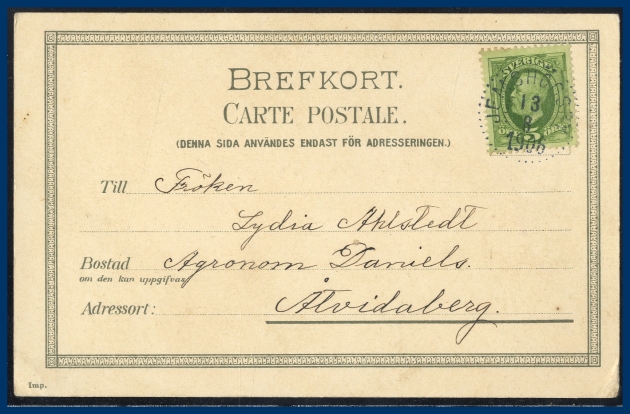 BREFKORT.
CARTE POSTALE.
(DENNA SIDA ANVÄNDES ENDAST FÖR ADRESSERINGEN.)
SVERIGE
13
8
1906
Till Fröken
Lydia Ahlstedt
Bostad Agronom Daniels.
om den kan uppgifvas
Adressort: Åtvidaberg.
Imp.